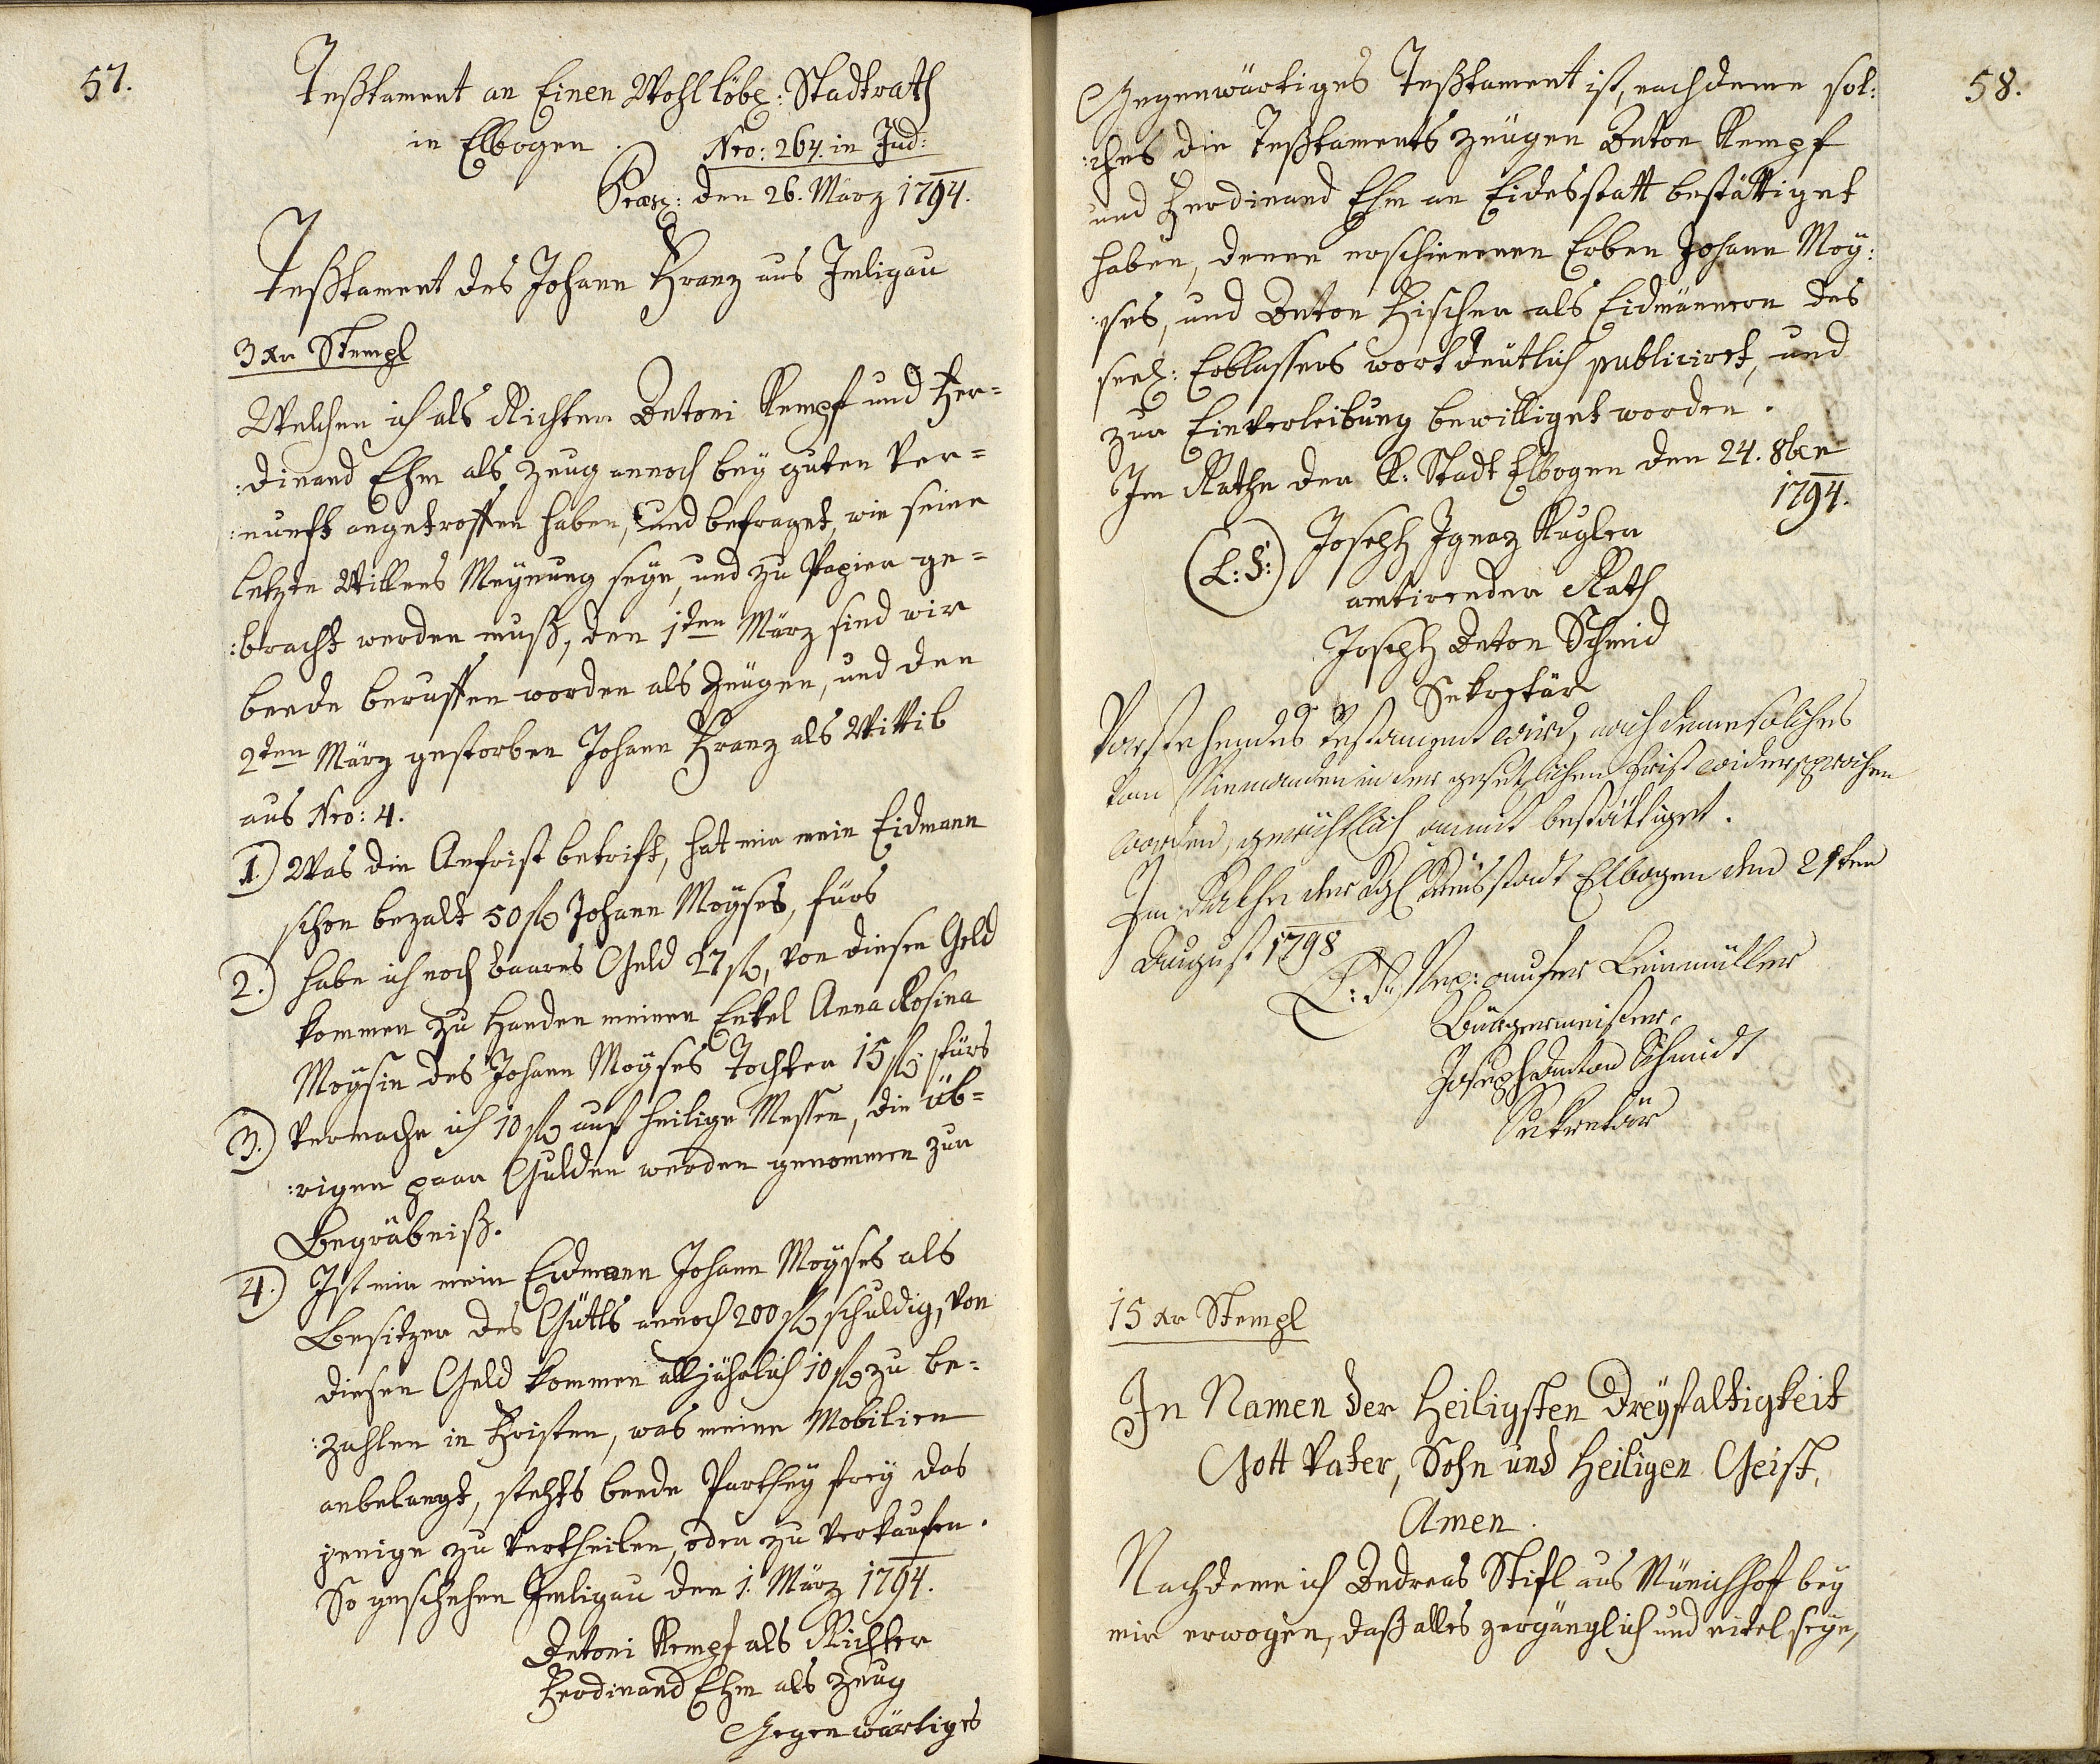 57.
Teßtament an Einen Wohllöbl: Stadtrath
in Elbogen. Nro: 264. in Jud:
Præs: den 26. März 1794.
Teßtament des Johann Franz aus Imligau
3 xr Stempl
Welchen ich als Richter Antoni Kempf und Fer=
:dinand Ehm als Zeug annoch bey guten Ver=
:nunft angetroffen haben, und befraget, wie seine
letzte Willens Meynung seye, und zu Papier ge=
:bracht werden muß, den 1ten März sind wir
beede beruffen worden als Zeugen, und den
2ten März gestorben Johann Franz als Wittib
aus Nro: 4.
1.) Was die Anfrist betrift, hat mir mein Eidmann
schon bezalt 50 fl Johann Moyses, fürs
2.) habe ich noch baares Geld 27 fl, von diesen Geld
kommen zu Handen meiner Enkel Anna Rosina
Moysin des Johann Moyses Tochter 15 fl. fürs
3.) Vermache ich 10 fl auf heilige Messen, die üb=
:rigen paar Gulden werden genommen zur
Begräbniß.
4.) Ist mir mein Eidmann Johann Moyses als
Besitzer des Güttls annoch 200 fl schuldig, von
diesen Geld kommen alljährlich 10 fl zu be=
:zahlen in Fristen, was meine Mobilien
anbelangt, stehts beede Parthey frey das
jenige zu vertheilen, oder zu verkaufen.
So geschehen Imligau den 1. März 1794.
Antoni Kempf als Richter
Ferdinand Ehm als Zeug
Gegenwärtiges
58.
Gegenwärtiges Teßtament ist, nachdeme sol:
:ches die Teßtaments Zeugen Anton Kempf
und Ferdinand Ehm an Eidesstatt bestättiget
haben, denen erschienenen Erben Johann Moy:
:ses, und Anton Fischer als Eidmännern des
seel: Erblassers wort deutlich publicirt, und
zur Einverleibung bewilliget worden.
Im Rathe der K: Stadt Elbogen den 24. 8ber
1794.
(L: S:) Joseph Ignaz Kugler
amtirender Rath
Joseph Anton Schmid
Sekretär
Vorstehendes Testament wird, nach deme solches
von Niemanden in der gesetzlichen Frist widersprochen
worden, gerichtlich anmit bestättiget.
Im Rathe der kgl Kreisstadt Elbogen den 21ten
August 1798
L: S: Leinmüller
Bürgermeister
Joseph Anton Schmidt
Sekretär
15 xr Stempl
In Namen der Heiligsten Dreyfaltigkeit
Gott Vater, Sohn und Heiligen Geist,
Amen.
Nachdeme ich Andreas Stifl aus Münichhoff bey
mir erwogen, daß alles zergänglich und eitel seye,